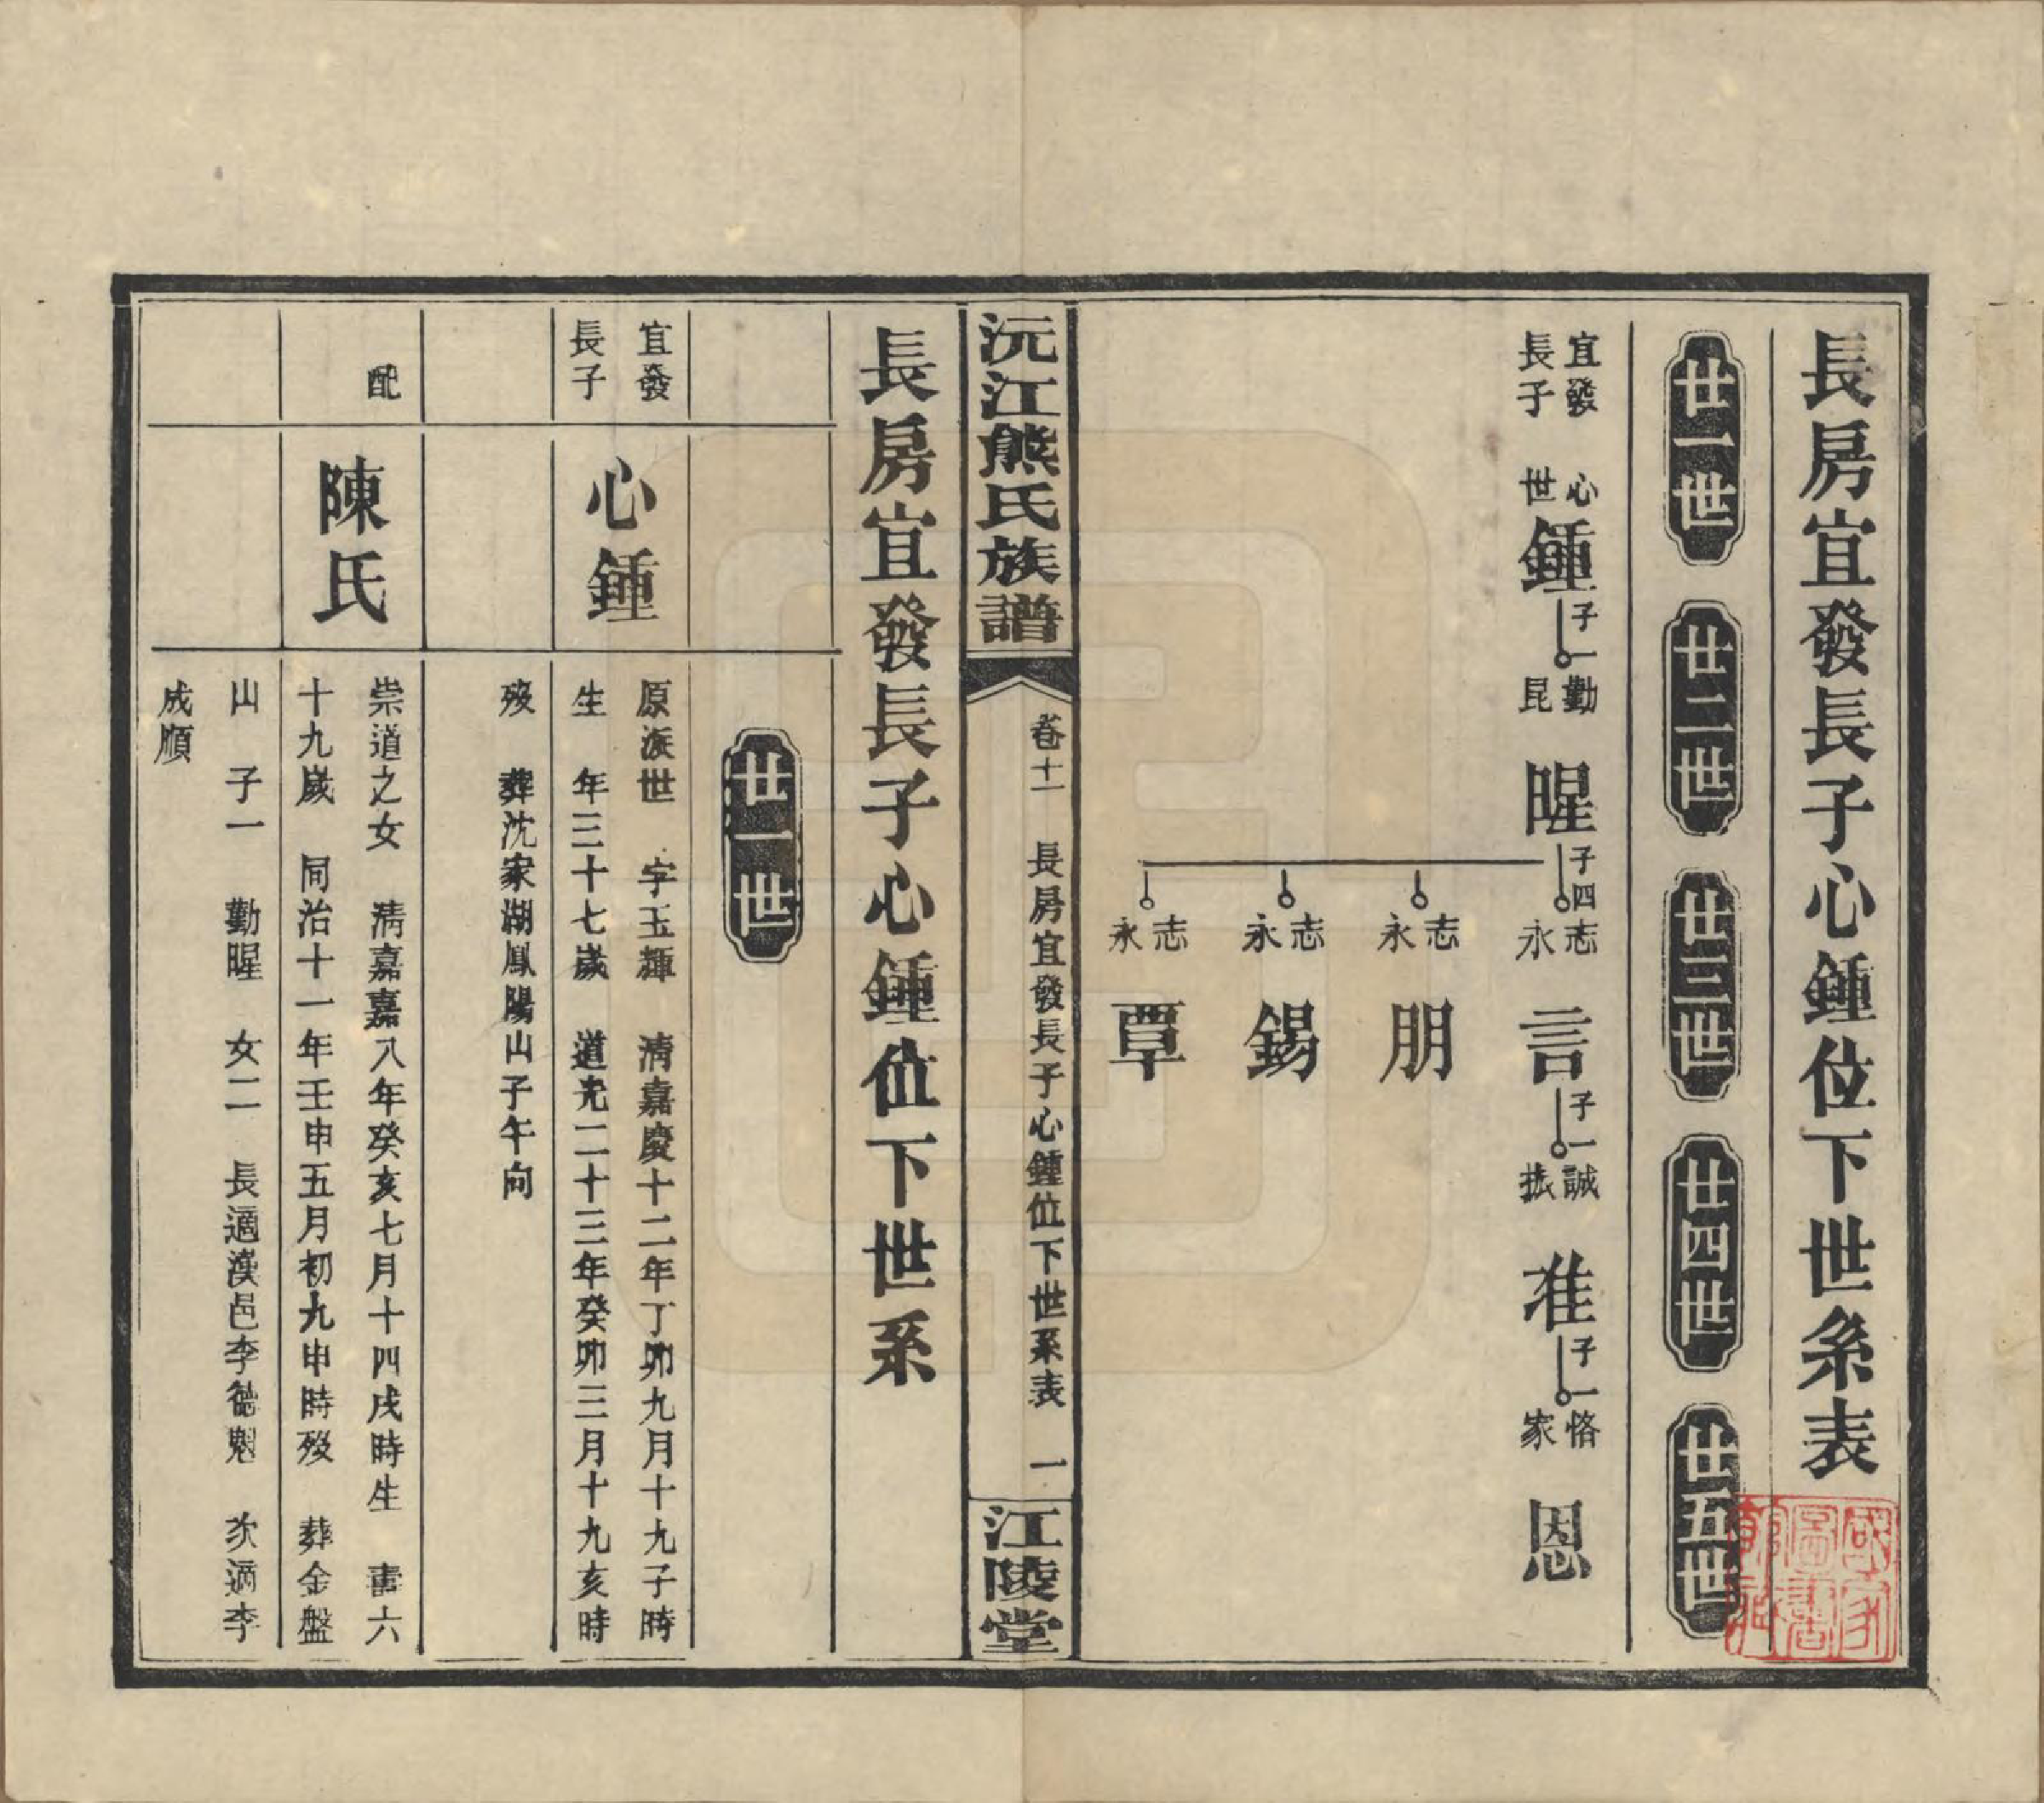 長房宜發長子心鍾位下世系表
廿一世
廿二世
廿三世
廿四世
廿五世
宜發
長子
心
世
鍾
子一
勤
昆
睲
子四
志
永
言
子一
誠
振
准
子一
恪
家
恩
志
永
朋
志
永
錫
志
永
覃
沅江熊氏族譜
卷十一 長房宜發長子心鍾位下世系表 一
江陵堂
長房宜發長子心鍾位下世系
廿一世
宜發
長子
心鍾
原派世 字玉輝 清嘉慶十二年丁卯九月十九子時
生 年三十七歲 道光二十三年癸卯三月十九亥時
歿 葬沈家湖鳳陽山子午向
配
陳氏
崇道之女 清嘉嘉八年癸亥七月十四戌時生 壽六
十九歲 同治十一年壬申五月初九申時歿 葬金盤
山 子一 勤睲 女二 長適漢邑李德魁 次適李
成順
國家圖書館藏